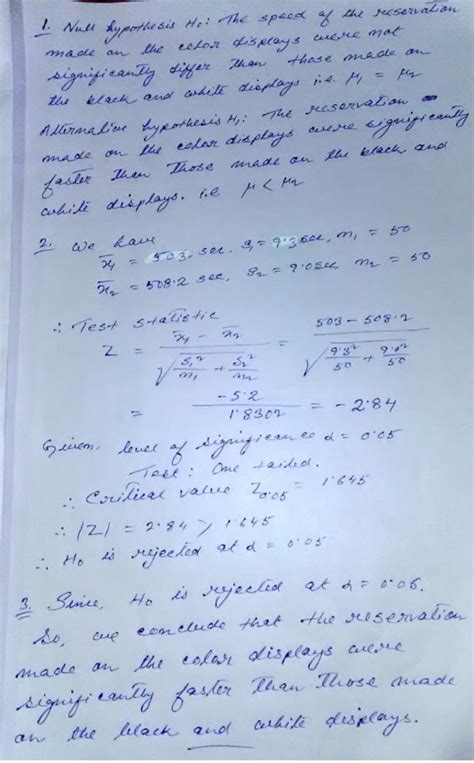 1. Null hypothesis H₀: The speed of the reservation
made on the color displays were not
significantly differ than those made on
the black and white displays i.e. μ₁ = μ₂
Alternative hypothesis H₁: The reservation
made on the color displays were significantly
faster than those made on the black and
white displays. i.e μ < μ₂
2. We have
x̄₁ = 503, sec. s₁ = 9.3 sec, n₁ = 50
x̄₂ = 508.2 sec, s₂ = 9.0 sec, n₂ = 50
∴ Test statistic
Z = (x̄₁ - x̄₂) / √(s₁²/n₁ + s₂²/n₂) = (503 - 508.2) / √(9.3²/50 + 9.0²/50)
= -5.2 / 1.8302 = -2.84
Given, level of significance α = 0.05
Test: One tailed.
∴ Critical value Z₀.₀₅ = 1.645
∴ |Z| = 2.84 > 1.645
∴ H₀ is rejected at α = 0.05
3. Since, H₀ is rejected at α = 0.05.
So, we conclude that the reservation
made on the color displays were
significantly faster than those made
on the black and white displays.